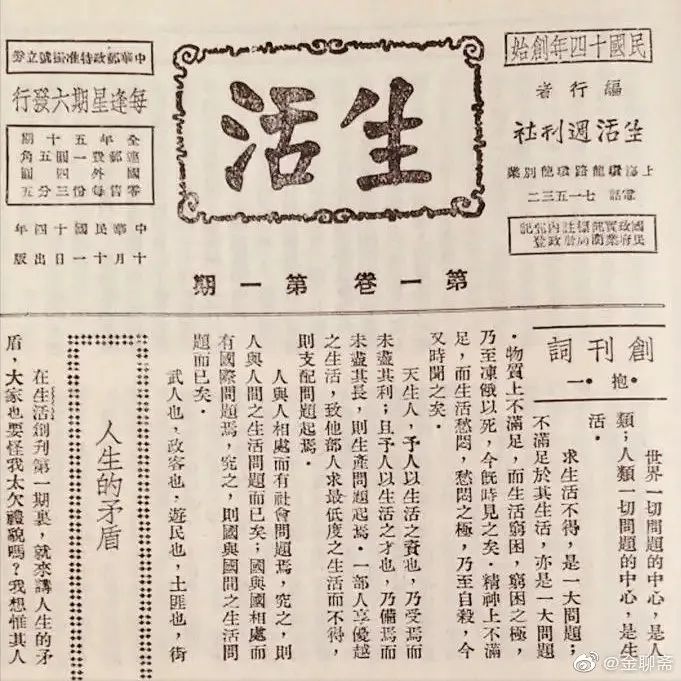 民國十四年創始
編行者
生活週刊社
上海環龍路環龍別業
電話 七一五三二
生活
第一卷 第一期
中華郵政特准掛號立券
每逢星期六發行
全年五十期
連郵費一圓五角
國外四圓
零售每份三分五
中華民國十四年
十月十一日出版
創刊詞
抱一
世界一切問題的中心，是人
類；人類一切問題的中心，是生
活．
求生活不得，是一大問題；
不滿足於其生活，亦是一大問題
．物質上不滿足，而生活窮困，窮困之極，
乃至凍餓以死，今既時見之矣．精神上不滿
足，而生活愁悶，愁悶之極，乃至自殺，今
又時聞之矣．
天生人，予人以生活之資也，乃受焉而
未盡其利；且予人以生活之才也，乃備焉而
未盡其長，則生產問題起焉．一部人享優越
之生活，致他部人求最低度之生活而不得，
則支配問題起焉．
人與人相處而有社會問題焉，究之，則
人與人間之生活問題而已矣；國與國相處而
有國際問題焉，究之，則國與國間之生活問
題而已矣．
武人也，政客也，遊民也，土匪也，街
人生的矛盾
在生活創刊第一期裏，就來講人生的矛
盾，大家也要怪我太欠禮貌嗎？我想惟其人
@金聊斋